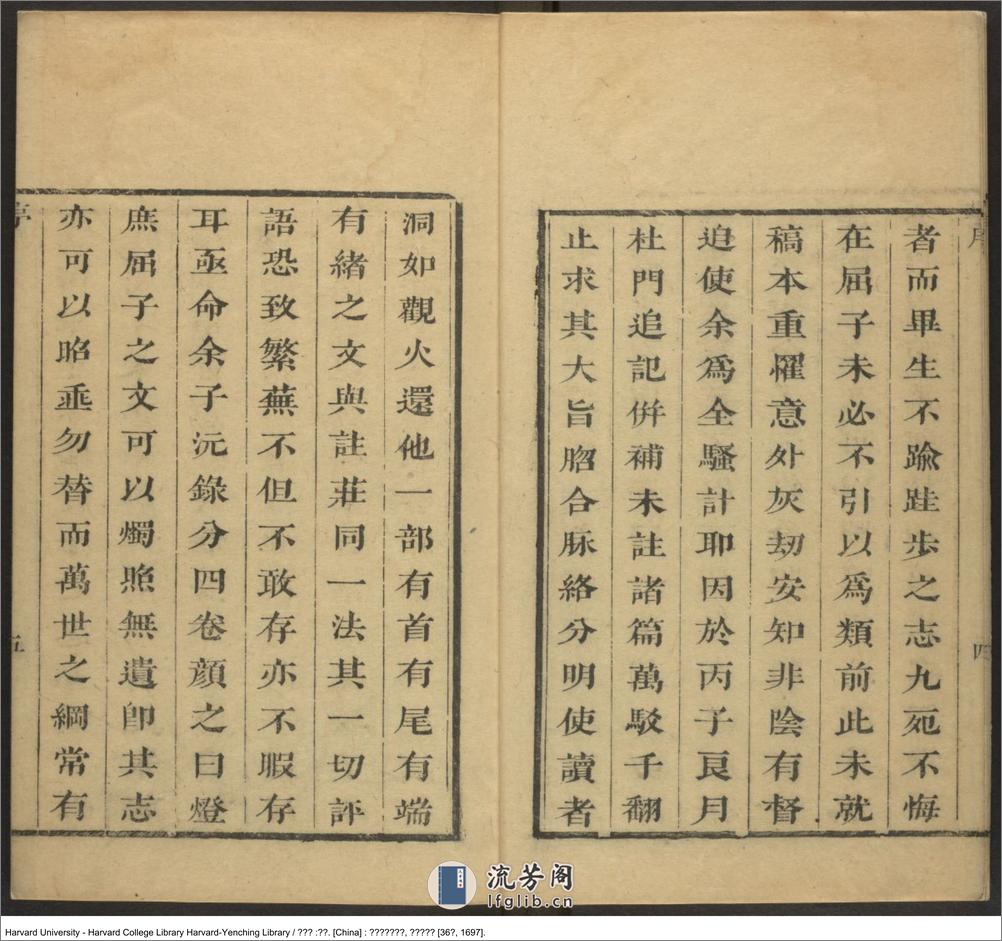 序
四
者而畢生不踰跬步之志九死不悔
在屈子未必不引以為類前此未就
稿本重懼意外灰刼安知非陰有督
追使余為全騷計耶因於丙子艮月
杜門追記併補未註諸篇萬駁千翻
止求其大旨脗合脉絡分明使讀者
洞如觀火還他一部有首有尾有端
有緒之文與註莊同一法其一切評
語恐致繁蕪不但不敢存亦不暇存
耳亟命余子沅錄分四卷顔之曰燈
庶屈子之文可以燭照無遺卽其志
亦可以昭垂勿替而萬世之綱常有
序
五
流芳阁
lfglib.cn
Harvard University - Harvard College Library Harvard-Yenching Library / ??? :??. [China] : ???????, ????? [36?, 1697].